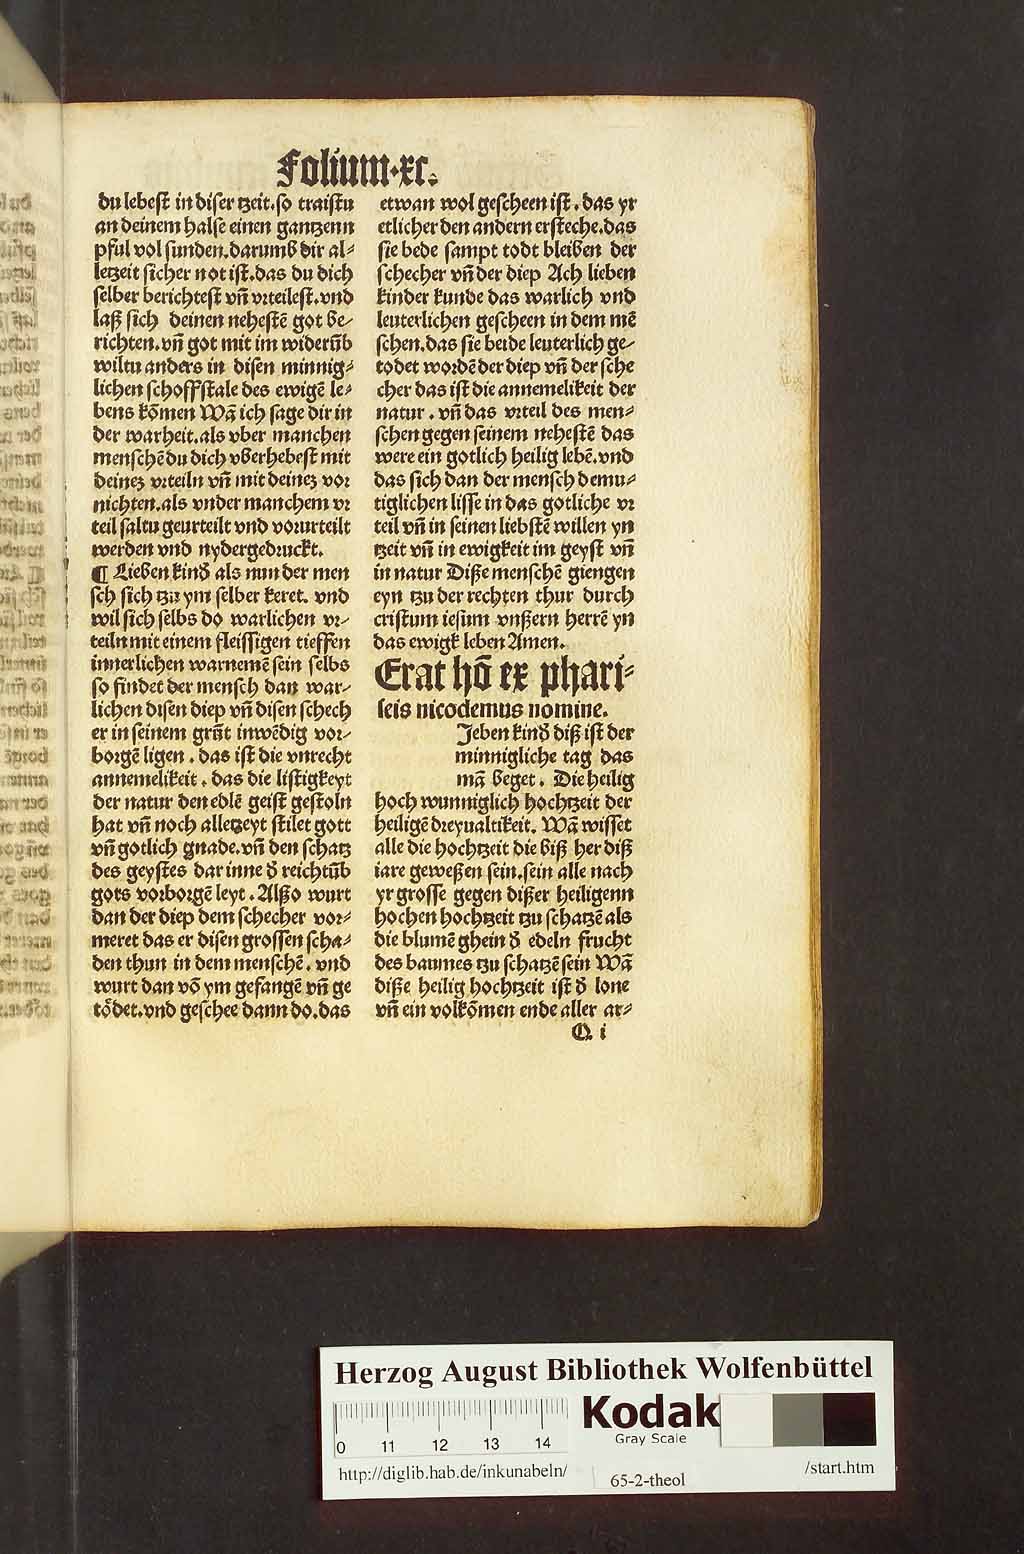 Folium·xc.
du lebest in diser tzeit. so traistu
an deinem halse einen gantzenn
pful vol sunden. darumb dir al⸗
letzeit sicher not ist. das du dich
selber berichtest vn̄ vrteilest. vnd
laß sich deinen nehestē got be⸗
richten. vn̄ got mit im widerūb
wiltu anders in disen minnig⸗
lichen schoffstale des ewigē le⸗
bens kōmen Wā ich sage dir in
der warheit. als vber manchen
menschē du dich vberhebest mit
deinez vrteiln vn̄ mit deinez vor
nichten. als vnder manchem vr
teil saltu geurteilt vnd vorurteilt
werden vnd nydergedruckt.
¶ Lieben kind̕ als nun der men
sch sich tzu ym selber keret. vnd
wil sich selbs do warlichen vr⸗
teiln mit einem fleissigen tieffen
innerlichen warnemē sein selbs
so findet der mensch dan war⸗
lichen disen diep vn̄ disen schech
er in seinem grūt inwēdig vor⸗
borgē ligen. das ist die vnrecht
annemelikeit. das die listigkeyt
der natur den edlē geist gestoln
hat vn̄ noch alletzeyt stilet gott
vn̄ gotlich gnade. vn̄ den schatz
des geystes dar inne d̕ reichtūb
gots vorborgē leyt. Alßo wurt
dan der diep dem schecher vor⸗
meret das er disen grossen scha⸗
den thun in dem menschē. vnd
wurt dan vō ym gefangē vn̄ ge
tödet. vnd geschee dann do. das
etwan wol gescheen ist. das yr
etlicher den andern ersteche. das
sie bede sampt todt bleiben der
schecher vn̄ der diep Ach lieben
kinder kunde das warlich vnd
leuterlichen gescheen in dem mē
schen. das sie beide leuterlich ge⸗
todet wordē der diep vn̄ der sche
cher das ist die annemelikeit der
natur. vn̄ das vrteil des men⸗
schen gegen seinem nehestē das
were ein gotlich heilig lebē. vnd
das sich dan der mensch demu⸗
tiglichen lisse in das gotliche vr
teil vn̄ in seinen liebstē willen yn
tzeit vn̄ in ewigkeit im geyst vn̄
in natur Diße menschē giengen
eyn tzu der rechten thur durch
cristum iesum vnßern herrē yn
das ewigk leben Amen.
Erat hō ex phari⸗
seis nicodemus nomine.
Jeben kind̕ diß ist der
minnigliche tag das
mā beget. Die heilig
hoch wunniglich hochtzeit der
heiligē dreyualtikeit. Wā wisset
alle die hochtzeit die biß her diß
iare geweßen sein. sein alle nach
yr grosse gegen dißer heiligenn
hochen hochtzeit tzu schatzē als
die blumē ghein d̕ edeln frucht
des baumes tzu schatzē sein Wā
diße heilig hochtzeit ist d̕ lone
vn̄ ein volkōmen ende aller ar⸗
Q i
Herzog August Bibliothek Wolfenbüttel
0 11 12 13 14
Kodak
Gray Scale
http://diglib.hab.de/inkunabeln/
65-2-theol
/start.htm